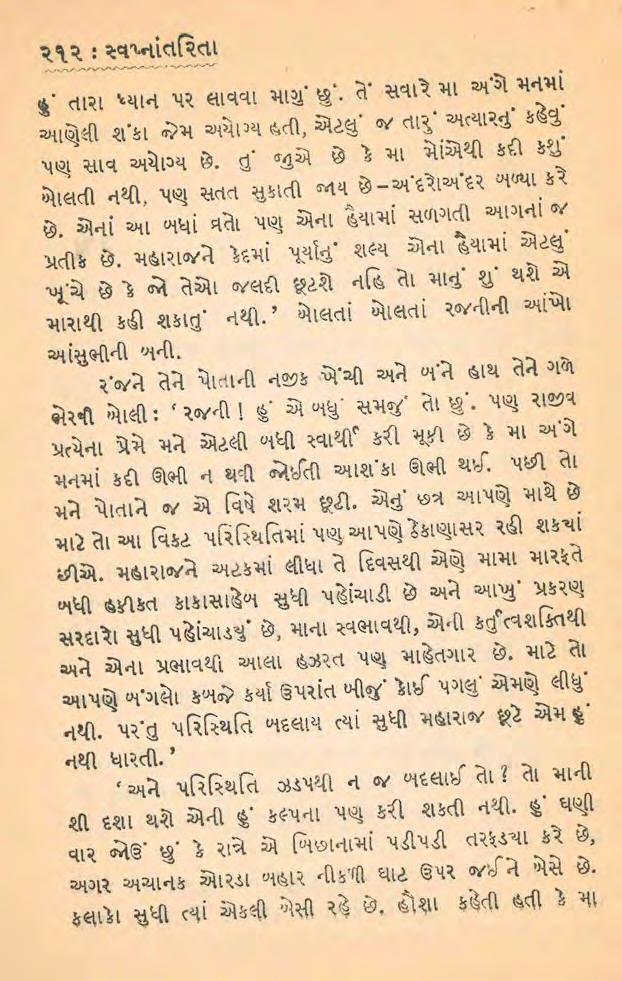 ૨૧૨ : સ્વપ્નાંતરિતા
હું તારા ધ્યાન પર લાવવા માગું છું. તેં સવારે મા અંગે મનમાં
આણેલી શંકા જેમ અયોગ્ય હતી, એટલું જ તારું અત્યારનું કહેવું
પણ સાવ અયોગ્ય છે. તું જુએ છે કે મા મોંએથી કદી કશું
બોલતી નથી, પણ સતત સુકાતી જાય છે – અંદરોઅંદર બળ્યા કરે
છે. એનાં આ બધાં વ્રતો પણ એના હૈયામાં સળગતી આગનાં જ
પ્રતીક છે. મહારાજને કેદમાં પૂર્યાનું શલ્ય એના હૈયામાં એટલું
ખૂંચે છે કે જો તેઓ જલદી છૂટશે નહિ તો માનું શું થશે એ
મારાથી કહી શકાતું નથી.’ બોલતાં બોલતાં રજનીની આંખો
આંસુભીની બની.
રંજને તેને પોતાની નજીક ખેંચી અને બંને હાથ તેને ગળે
ભેરવી બોલી : ‘રજની ! હું એ બધું સમજું તો છું. પણ રાજીવ
પ્રત્યેના પ્રેમે મને એટલી બધી સ્વાર્થી કરી મૂકી છે કે મા અંગે
મનમાં કદી ઊભી ન થવી જોઈતી આશંકા ઊભી થઈ. પછી તો
મને પોતાને જ એ વિષે શરમ છૂટી. એનું છત્ર આપણે માથે છે
માટે તો આ વિકટ પરિસ્થિતિમાં પણ આપણે ઠેકાણાસર રહી શક્યાં
છીએ. મહારાજને અટકમાં લીધા તે દિવસથી એણે મામા મારફતે
બધી હકીકત કાકાસાહેબ સુધી પહોંચાડી છે અને આખું પ્રકરણ
સરદારો સુધી પહોંચાડ્યું છે, માના સ્વભાવથી, એની કર્તુત્વશક્તિથી
અને એના પ્રભાવથી આલા હઝરત પણ માહેતગાર છે. માટે તો
આપણે બંગલો કબજે કર્યા ઉપરાંત બીજું કોઈ પગલું એમણે લીધું
નથી. પરંતુ પરિસ્થિતિ બદલાય ત્યાં સુધી મહારાજ છૂટે એમ હું
નથી ધારતી.’
‘અને પરિસ્થિતિ ઝડપથી ન જ બદલાઈ તો ? તો માની
શી દશા થશે એની હું કલ્પના પણ કરી શકતી નથી. હું ઘણી
વાર જોઉં છું કે રાત્રે એ બિછાનામાં પડીપડી તરફડ્યા કરે છે,
અગર અચાનક ઓરડા બહાર નીકળી ઘાટ ઉપર જઈને બેસે છે.
કલાકો સુધી ત્યાં એકલી બેસી રહે છે. હૌશા કહેતી હતી કે મા